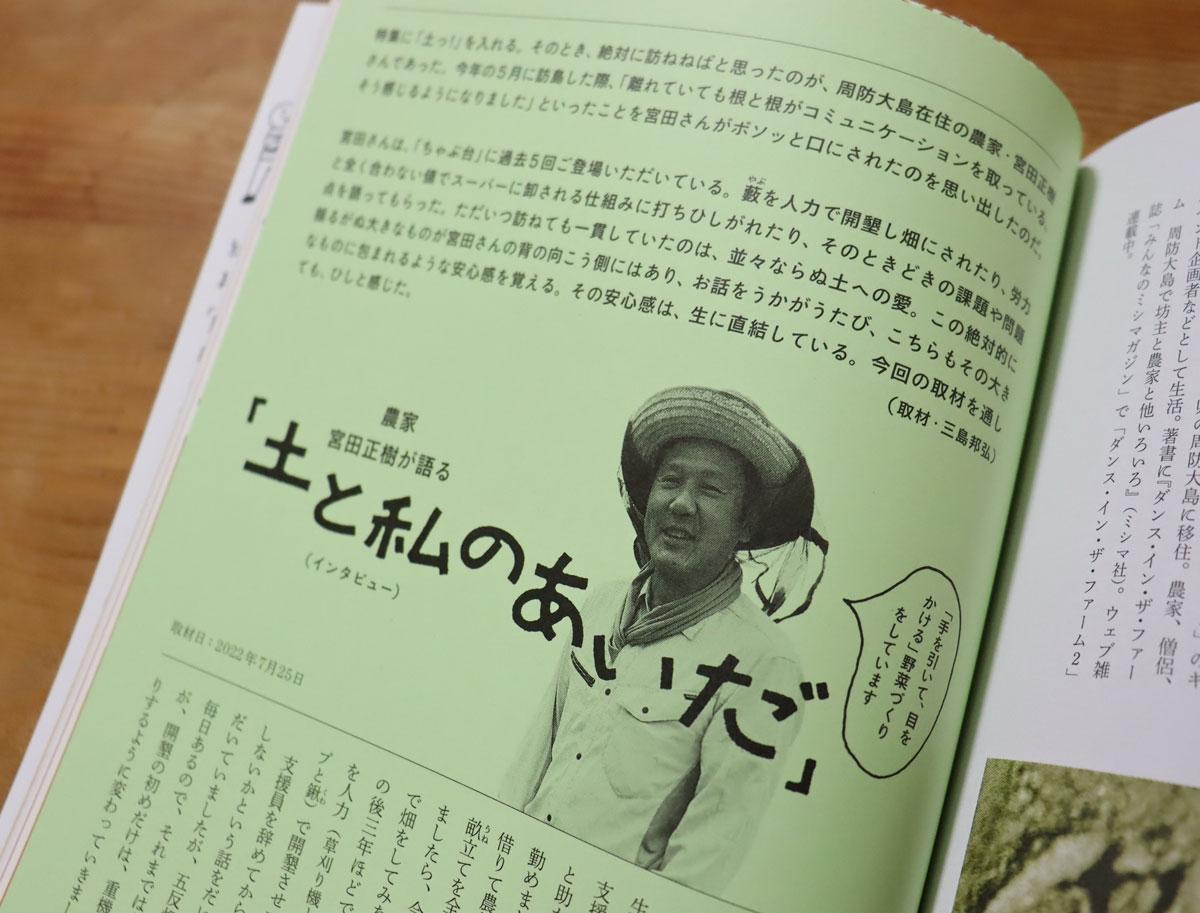 特集に「土っ!」を入れる。そのとき、絶対に訪ねねばと思ったのが、周防大島在住の農家・宮田正樹
さんであった。今年の5月に訪島した際、「離れていても根と根がコミュニケーションを取っている。
そう感じるようになりました」といったことを宮田さんがボソッと口にされたのを思い出したのだ。
宮田さんは、「ちゃぶ台」に過去5回ご登場いただいている。藪を人力で開墾し畑にされたり、労力
やぶ
と全く合わない値でスーパーに卸される仕組みに打ちひしがれたり、そのときどきの課題や問題
点を語ってもらった。ただいつ訪ねても一貫していたのは、並々ならぬ土への愛。この絶対的に
揺るがぬ大きなものが宮田さんの背の向こう側にはあり、お話をうかがうたび、こちらもその大き
なものに包まれるような安心感を覚える。その安心感は、生に直結している。今回の取材を通し
ても、ひしと感じた。
(取材・三島邦弘)
農家
宮田正樹が語る
「土と私のあいだ」
(インタビュー)
「手を引いて、目を
かける」野菜づくり
をしています
取材日:2022年7月25日
支援
と助
勤めま
借りて農
畝立てを全
うね
ましたら、今
で畑をしてみた
の後三年ほどで
を人力(草刈り機と
プと鍬)で開墾させ
くわ
支援員を辞めてから
しないかという話をだい
だいていましたが、五反
毎日あるので、それまでは
が、開墾の初めだけは、重機
りするように変わっていきまし
企画者などとして生活。著書に『ダンス・イン・ザ・ファー
周防大島に移住。農家、僧侶、
ム 周防大島で坊主と農家と他いろいろ』(ミシマ社)。ウェブ雑
誌「みんなのミシマガジン」で「ダンス・イン・ザ・ファーム2」
連載中。